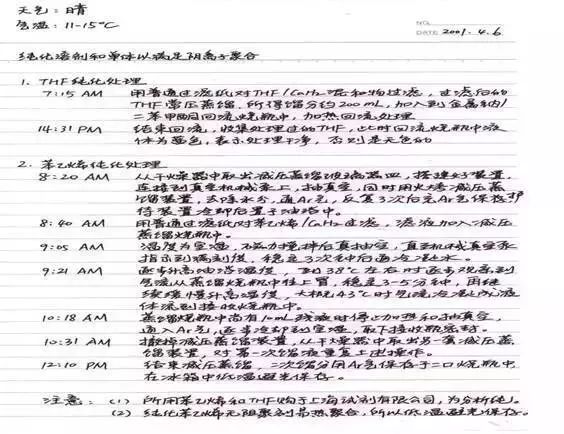 天气：晴
气温：11-15℃
NO.
DATE 2001.4.6
纯化溶剂和单体以满足阴离子聚合
1. THF纯化处理
7:15 AM 用普通过滤纸对THF/CaH₂混和物过滤，过滤后的
THF常压蒸馏，所得馏分约200mL，加入到金属钠/
二苯甲酮回流烧瓶中，加热回流处理
14:31 PM 结束回流，收集处理过的THF，此时回流烧瓶中液
体为蓝色，表示处理干净，否则是无色的
2. 苯乙烯纯化处理
8:20 AM 从干燥器中取出减压蒸馏玻璃器皿，搭建好装置，
连接到真空机械泵上，抽真空，同时用火烤减压蒸
馏装置，去除水分，通Ar气，反复3次后充Ar气保存即
待装置冷却后置于油浴中。
8:40 AM 用普通过滤纸对苯乙烯/CaH₂过滤，滤液加入减压
蒸馏烧瓶中。
9:05 AM 温度为室温，不磁力搅拌后真抽空，直至机械真空泵
指示到满刻后，稳定3次钟后通冷凝水。
9:21 AM 逐步升高油浴温度，到38℃左右时逐步观察到
气流从蒸馏烧瓶中往上冒，稳定3-5分钟，再继
续缓慢升高温度，大概43℃时气流冷凝成液
体流到接收烧瓶中。
10:18 AM 蒸馏烧瓶中尚有10mL残液时停止加热和抽真空，
通入Ar气，逐步冷却到室温，取下接收瓶密封。
10:31 AM 撤掉减压蒸馏装置，从干燥器中取出另一套减压蒸
馏装置，对第一次馏液重复上述操作。
12:10 PM 结束减压蒸馏，二次馏分用Ar气保存于二口烧瓶中
在冰箱中低温避光保存。
注意：(1) 所用苯乙烯和THF购于上海试剂有限公司，为分析纯。
(2) 纯化苯乙烯无阻聚剂易热聚合，所以低温避光保存。